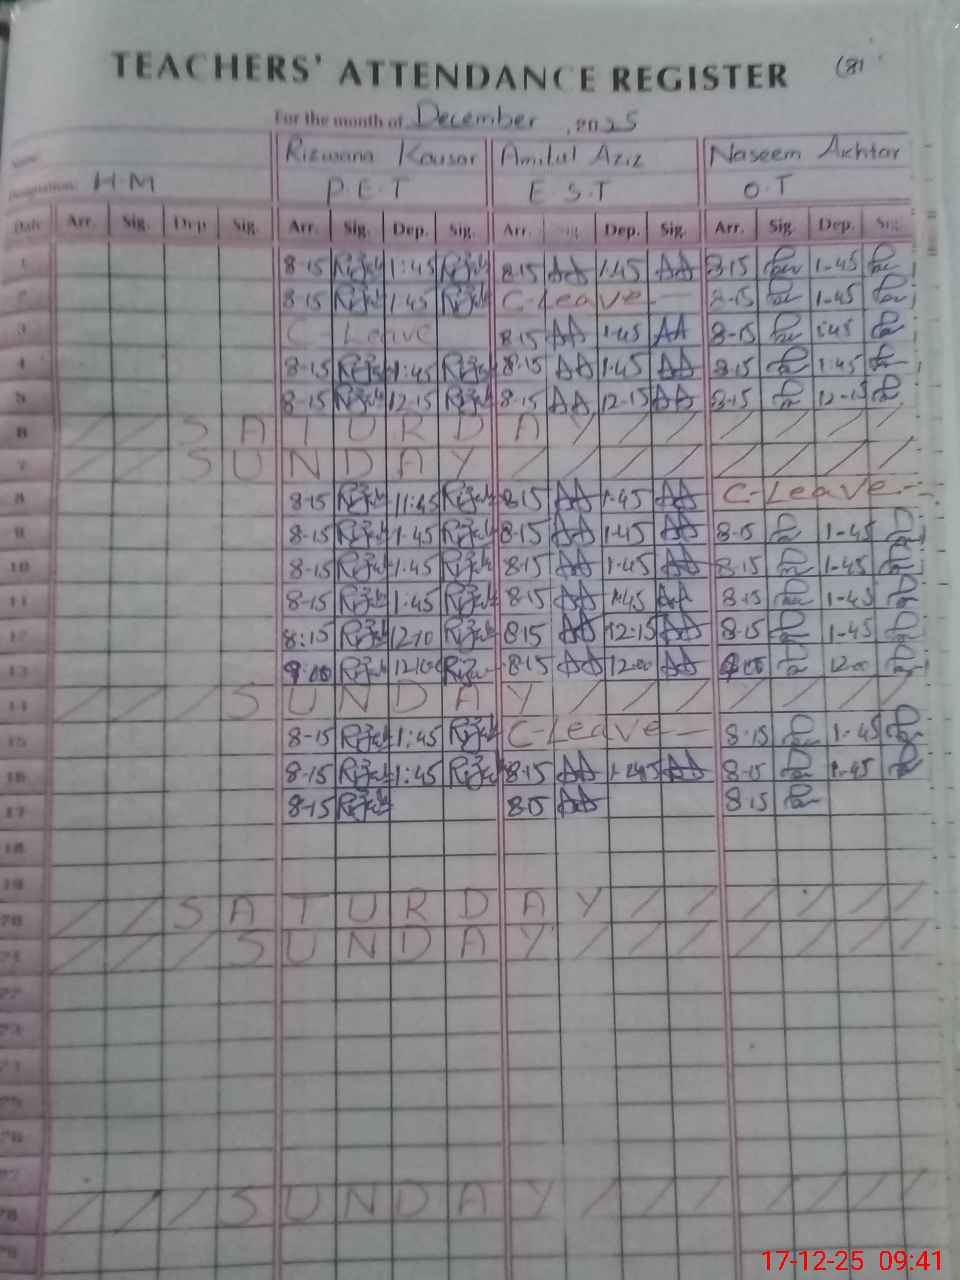 TEACHERS' ATTENDANCE REGISTER (8)
For the month of December, 2025
Name: Rizwana Kousar Amitul Aziz Naseem Akhtar
Designation: H.M P.E.T E.S.T O.T
Date Arr. Sig. Dep. Sig. Arr. Sig. Dep. Sig. Arr. Sig. Dep. Sig. Arr. Sig. Dep. Sig.
1 8-15 1:45 8.15 AA 1.45 AA 8-15 1-45
2 8-15 1.45 C-Leave 8-15 1-45
3 C Leave 8.15 AA 1.45 AA 8-15 1:45
4 8-15 1:45 8.15 AA 1.45 AA 8.15 1.45
5 8-15 12-15 8.15 AA 12-15 AA 8-15 12-15
6 SATURDAY
7 SUNDAY
8 8-15 8.15 AA 1.45 AA C-Leave
9 8-15 1.45 8.15 AA 1.45 AA 8-15 1-45
10 8-15 1.45 8.15 AA 1.45 AA 8.15 1-45
11 8-15 1:45 8.15 AA 1.45 AA 8.15 1-45
12 8:15 12.10 8.15 AA 12:15 AA 8.15 1-45
13 8.15 AA 12.00 AA 12.00
14 SUNDAY
15 8-15 1:45 C-Leave 8.15 1-45
16 8-15 1:45 8.15 AA AA 8.15 1-45
17 8-15 8.15 AA 8.15
18
19
20 SATURDAY
21 SUNDAY
22
23
24
25
26
27
28 SUNDAY
29
17-12-25 09:41